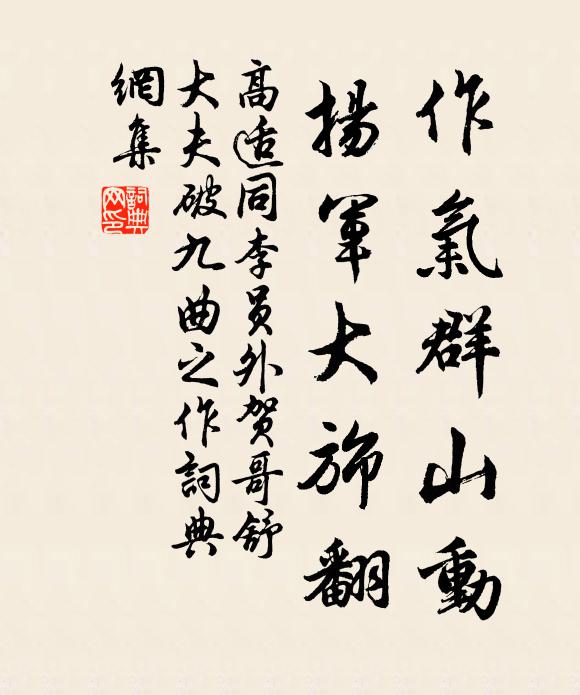 作氣群山動
揚軍大旆翻
高适同李員外贺哥舒
大夫破九曲之作詞典
網集
詞典
网印